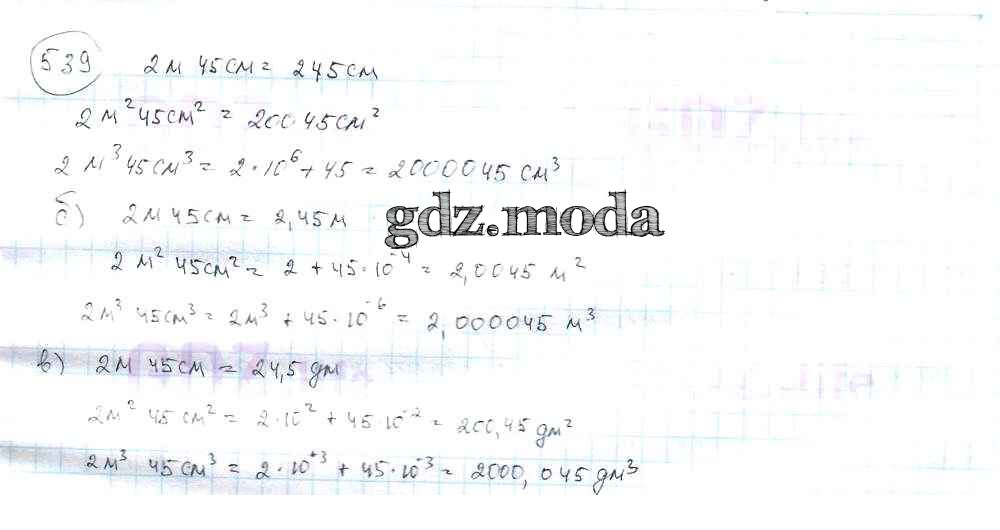 539 2м 45см = 245см
2м² 45см² = 20045см²
2 м³ 45см³ = 2·10⁶ + 45 = 2000045 см³
б) 2м 45см = 2,45м
gdz.moda
2 м² 45см² = 2 + 45·10⁻⁴ = 2,0045 м²
2м³ 45см³ = 2м³ + 45·10⁻⁶ = 2,000045 м³
в) 2м 45см = 24,5 дм
2м² 45 см² = 2·10² + 45·10⁻² = 200,45 дм²
2м³ 45см³ = 2·10⁺³ + 45·10⁻³ = 2000,045 дм³